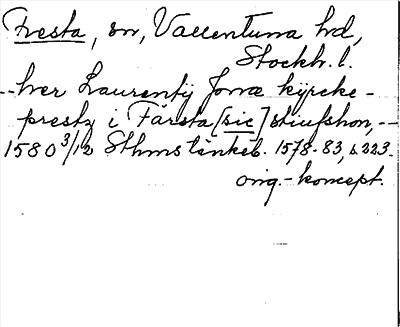 Fresta, sn, Vallentuna hd,
Stockh. l.
--her Laurentij Jonæ kyrcke-
prestz i Färsta [sic] stiufshon,--
1580 3/12 Sthms tänkeb. 1578-83, s. 223.
orig.-koncept.